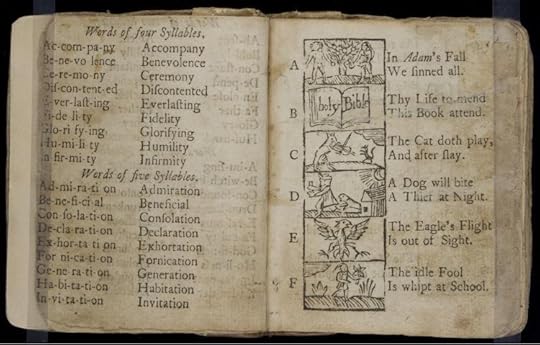 Words of four Syllables.
Ac-com-pa-ny Accompany
Be-ne-vo lence Benevolence
Ce-re-mo ny Ceremony
Diſ-con-tent-ed Diſcontented
E-ver-laſt-ing Everlaſting
Fi-de li-ty Fidelity
Glo-ri fy-ing Glorifying
Hu-mi-li ty Humility
In fir-mi-ty Infirmity
Words of five Syllables.
Ad-mi-ra-ti on Admiration
Be-ne-fi-ci al Beneficial
Con ſo-la-ti-on Conſolation
De-cla-ra-ti-on Declaration
Ex-hor-ta ti on Exhortation
For ni-ca-ti on Fornication
Ge-ne ra-ti on Generation
Ha-bi-ta-ti-on Habitation
In-vi-ta-ti-on Invitation
A
In Adam's Fall
We ſinned all.
B
holy Bible
Thy Life to mend
This Book attend.
C
The Cat doth play,
And after ſlay.
D
A Dog will bite
A Thief at Night.
E
The Eagle's Flight
Is out of Sight.
F
The idle Fool
Is whipt at School.